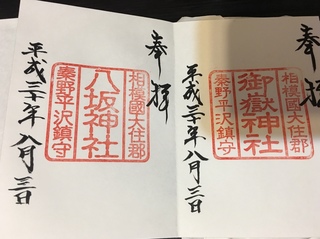 奉拝
相模國大住郡
八坂神社
秦野平沢鎮守
平成三十年八月三日
奉拝
相模國大住郡
御嶽神社
秦野平沢鎮守
平成三十年八月三日